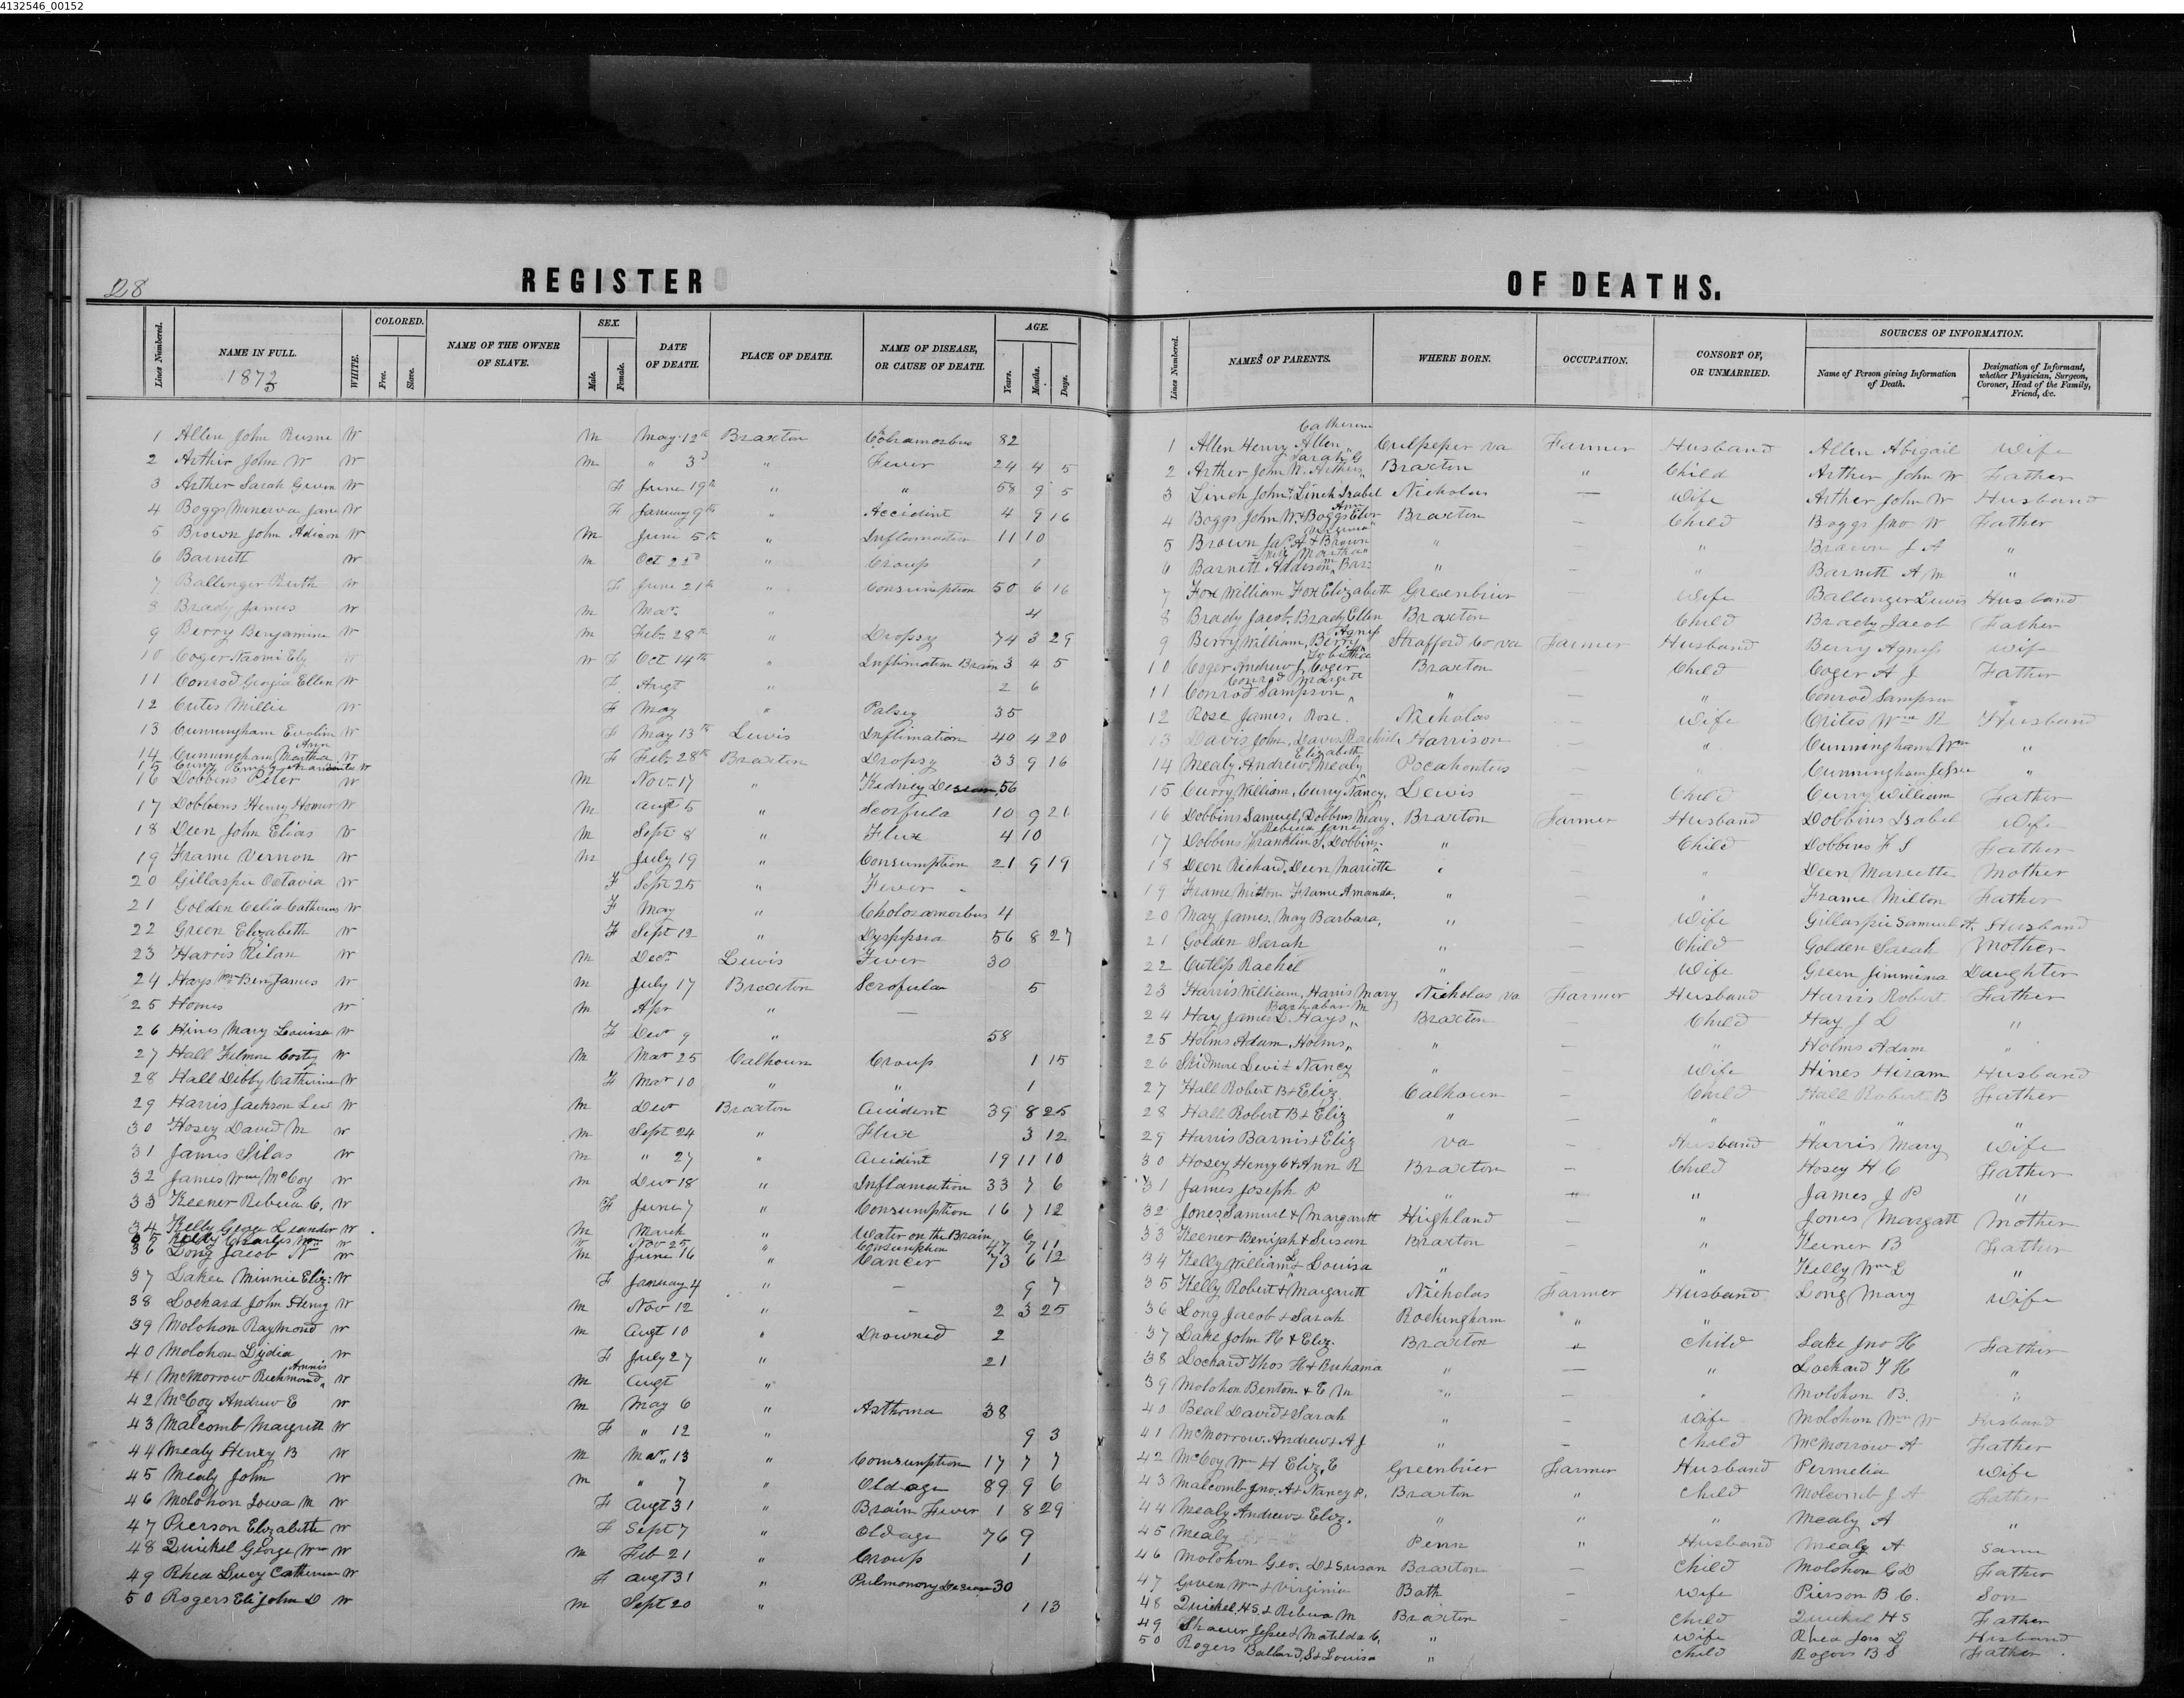 4132546_00152
128
REGISTER
OF DEATHS.
Lines Numbered. NAME IN FULL. 1873 WHITE. COLORED. Free. Slave. NAME OF THE OWNER OF SLAVE. SEX. Male. Female. DATE OF DEATH. PLACE OF DEATH. NAME OF DISEASE, OR CAUSE OF DEATH. AGE. Years. Months. Days.
1 Allen John W M May 12th Braxton 82
2 Arthir John W W M " 3d " Fever 24 4 5
3 Arther Sarah W F June 19th " " 58 9 5
4 Boggs Minerva Jane W F January 9th " Accident 4 9 16
5 Brown John Adison W M June 5th " Inflamation 11 10
6 Barnett W M Oct 22d " Croup 1
7 Ballenger Ruth W F June 21th " Consumption 50 6 16
8 Brady James W M Mar. " 4
9 Berry Benjamin W M Feb. 28th " Dropsy 74 3 29
10 Coger Naomi Elz W F Oct 14th " Inflimation Brain 3 4 5
11 Conrod Georgia Ellen W F Augt " 2 6
12 Crites Millie W F May " Palsey 35
13 Cunningham Evoline W F May 13th Lewis Inflimation 40 4 20
14 Cunningham Martha Ann W F Feb. 28th Braxton Dropsy 33 9 16
15 Curry Emily W
16 Dobbins Peter W M Nov. 17 " Kidney 56
17 Dobbins Henry Homer W M Augt 5 " Scorfula 10 9 21
18 Deen John Elias W M Sept 8 " Flux 4 10
19 Frame Vernon W M July 19 " Consumption 21 9 19
20 Gillaspie Octavia W F Sept 25 " Fever
21 Golden Celia Catherine W F May " Cholozamorbus 4
22 Green Elizabeth W F Sept 12 " Dyspepsia 56 8 27
23 Harris Rilan W M Decr Lewis Fever 30
24 Hays Wm Ben James W M July 17 Braxton Scrofula 5
25 Homes W M Apr " —
26 Hines Mary Louisa W F Decr 9 " 58
27 Hall Filmore Costy W M Mar 25 Calhoun Croup 1 15
28 Hall Libby Catherine W F Mar 10 " " 1
29 Harris Jackson Lew W M Decr Braxton Accident 39 8 25
30 Hosey David M W M Sept 24 " Flux 3 12
31 James Silas W M " 27 " Accident 19 11 10
32 James Wm McCoy W M Decr 18 " Inflamation 33 7 6
33 Keener Rebecca C. W F June 7 " Consumption 16 7 12
34 Kelly George Leander W M March " Water on the Brain 6
35 Kelly Charles Wm W Nov 25 " Consumption 47 7 11
36 Long Jacob W M June 16 " Cancer 73 6 12
37 Lake Minnie Eliz: W F January 4 " — 9 7
38 Lockard John Henry W M Nov 12 " - 2 3 25
39 Molohon Raymond W M Augt 10 " Drowned 2
40 Molohon Lydia W F July 27 " 21
41 McMorrow Richmond W M Augt "
42 McCoy Andrew E W M May 6 " Asthma 38
43 Malcomb Margrett W F " 12 " 9 3
44 Mealy Henry B W M Mar. 13 " Comsunption 17 7 7
45 Mealy John W M " 7 " Old age 89 9 6
46 Molohon Iowa M W F Augt 31 " Brain Fever 1 8 29
47 Pierson Elizabeth W F Sept 7 " Old age 76 9
48 Quickel George Wm W M Feb 21 " Croup 1
49 Rhea Lucy Catherine W F Augt 31 " Pulmonory 30
50 Rogers Eli John D W M Sept 20 " 1 13
Lines Numbered. NAMES OF PARENTS. WHERE BORN. OCCUPATION. CONSORT OF, OR UNMARRIED. SOURCES OF INFORMATION. Name of Person giving Information of Death. Designation of Informant, whether Physician, Surgeon, Coroner, Head of the Family, Friend, &c.
1 Allen Henry Allen Catherine Culpeper va Farmer Husband Allen Abigail Wife
2 Arther John W. Arther Sarah G Braxton " Child Arther John W Father
3 Linch John, Linch Isabel Nicholas — Wife Arther John W Husband
4 Boggs John W. & Boggs Eliz Ann Braxton — Child Boggs Jno W Father
5 Brown Jas. A & Brown " " Brown J A "
6 Barnett Addison, Bar: Martha " " Barnett A M "
7 Fox William Fox Elizabeth Greenbrier Wife Ballenger Lewis Husband
8 Brady Jacob, Brady Ellen Braxton Child Brady Jacob Father
9 Berry William, Berry Agness Strafford Co va Farmer Husband Berry Agness Wife
10 Coger Andrew J, Coger Tobitha Braxton Child Coger A J Father
11 Conrod Sampson Conrod Margett " — " Conrod Sampson "
12 Rose James, Rose. Nicholas — Wife Crites Wm R Husband
13 Davis John, Davis Rachiel Harrison — " Cunningham Wm "
14 Mealy Andrew Mealy Elizabeth Pocahontus — " Cunningham Jesse "
15 Curry William, Curry Nancy, Lewis — Child Curry William Father
16 Dobbins Samuel, Dobbins Mary. Braxton Farmer Husband Dobbins Isabel Wife
17 Dobbins Franklin S, Dobbins Rebecca Jane " — Child Dobbins F S Father
18 Deen Richard, Deen Mariette " — " Deen Mariette Mother
19 Frame Milton Frame Amanda. " — " Frame Milton Father
20 May James, May Barbara, " — Wife Gillaspie Samuel A, Husband
21 Golden Sarah " — Child Golden Sarah Mother
22 Cutlip Rachel " — Wife Green Jimmima Daughter
23 Harris William, Harris Mary Nicholas va Farmer Husband Harris Robert Father
24 Hay James L. Hays Braxton — Child Hay J L "
25 Holms Adam, Holms " — " Holms Adam "
26 Skidmore Levi & Nancy " — Wife Hines Hiram Husband
27 Hall Robert B & Eliz. Calhoun — Child Hall Robert B Father
28 Hall Robert B & Eliz " — " " "
29 Harris Barnis & Eliz va — Husband Harris Mary Wife
30 Hosey Henry C & Ann R Braxton — Child Hosey H C Father
31 James Joseph P " — " James J P "
32 Jones, Samuel & Margarett Highland — " Jones Margatt Mother
33 Keener Benijah & Susan Braxton " Keener B Father
34 Kelly William L & Louisa " — " Kelly Wm L "
35 Kelly Robert & Margarett Nicholas Farmer Husband Long Mary Wife
36 Long Jacob & Sarah Rockingham " "
37 Lake John H & Eliz. Braxton Child Lake Jno H Father
38 Lockard Thos H & Ruhama " — " Lockard T H "
39 Molohon Benton & E M " — " Molohon B. "
40 Beal David & Sarah " — Wife Molohon Wm W Husband
41 McMorrow Andrew & A J " — Child McMorrow A Father
42 McCoy Wm H Eliz. E Greenbrier Farmer Husband Permelia Wife
43 Malcomb Jno. A & Nancy P. Braxton " Child Molcomb J A Father
44 Mealy Andrew & Eliz. " " " Mealy A "
45 Mealy Penn " Husband Mealy A Same
46 Molohon Geo. D & Susan Braxton — Child Molohon G D Father
47 Given Wm & Virginia Bath — Wife Pierson B C. Son
48 Quickel H S. & Rebecca M Braxton — Child Quickel H S Father
49 Shaver Jesse & Matilda C, " Wife Rhea Jno L Husband
50 Rogers Ballard S & Louisa " Child Rogers B S Father